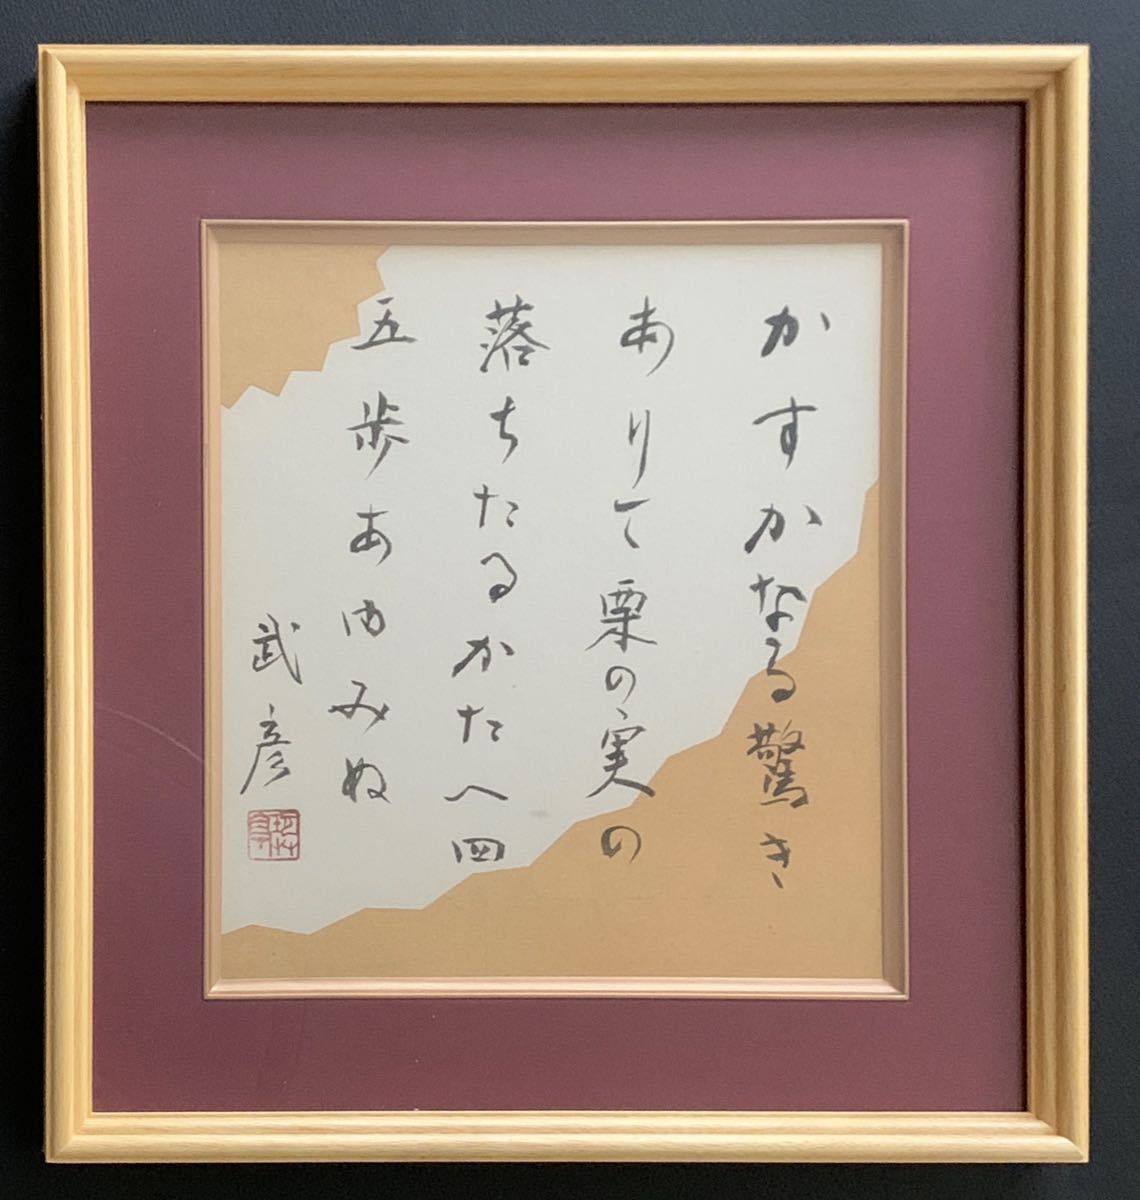 かすかなる驚き
ありて栗の実の
落ちたるかたへ四
五歩あゆみぬ
武彦